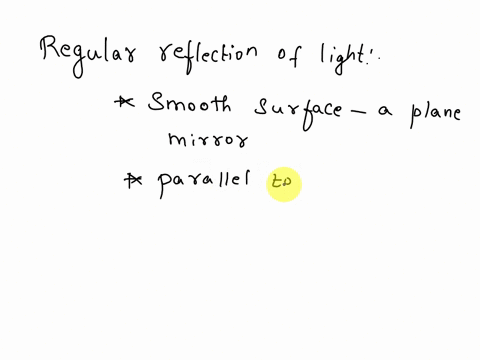 Regular reflection of light:.
* Smooth surface - a plane
mirror
* parallel to